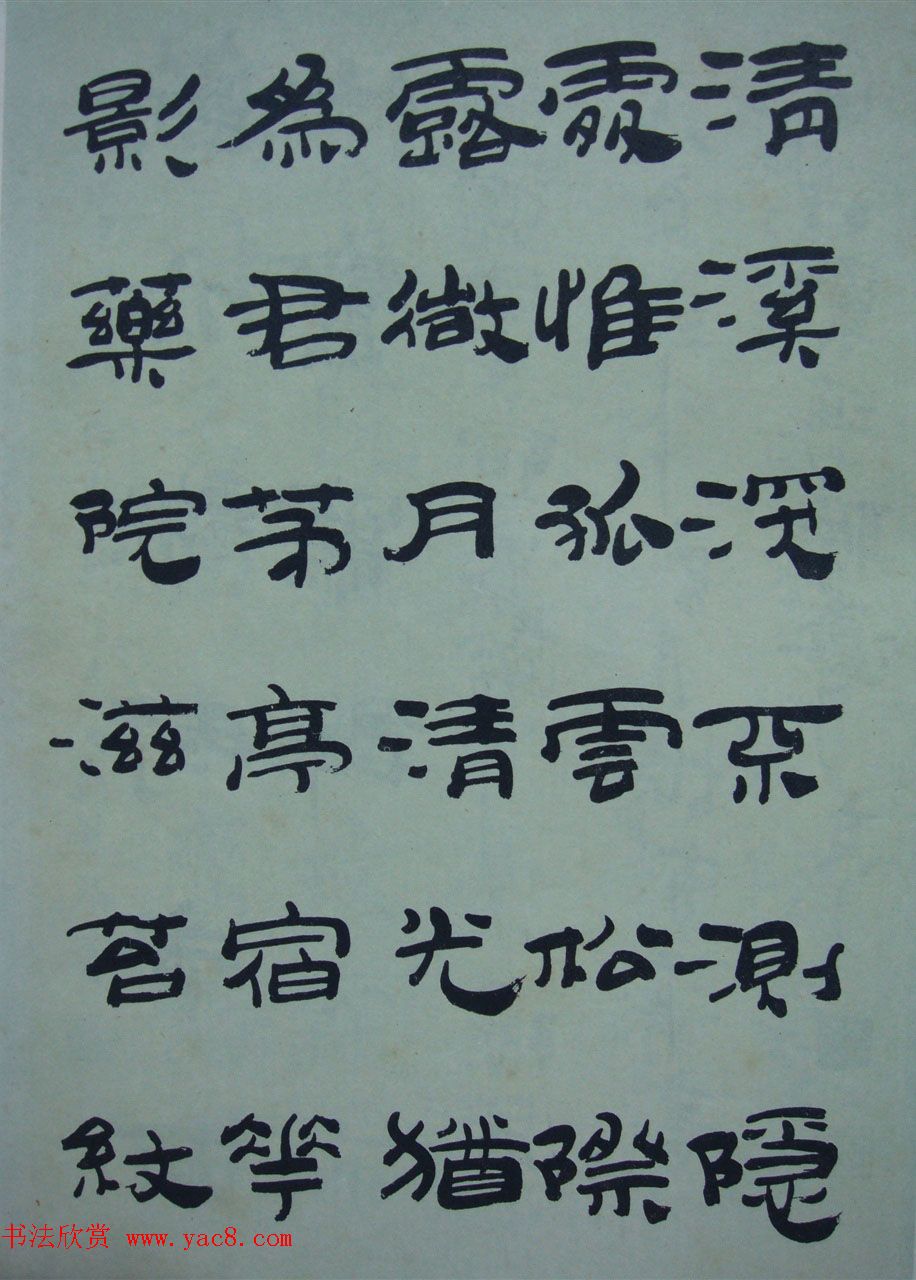 清溪深不測隱
處惟孤雲松際
露微月清光猶
為君茅亭宿花
影藥院滋苔紋
书法欣赏 www.yac8.com